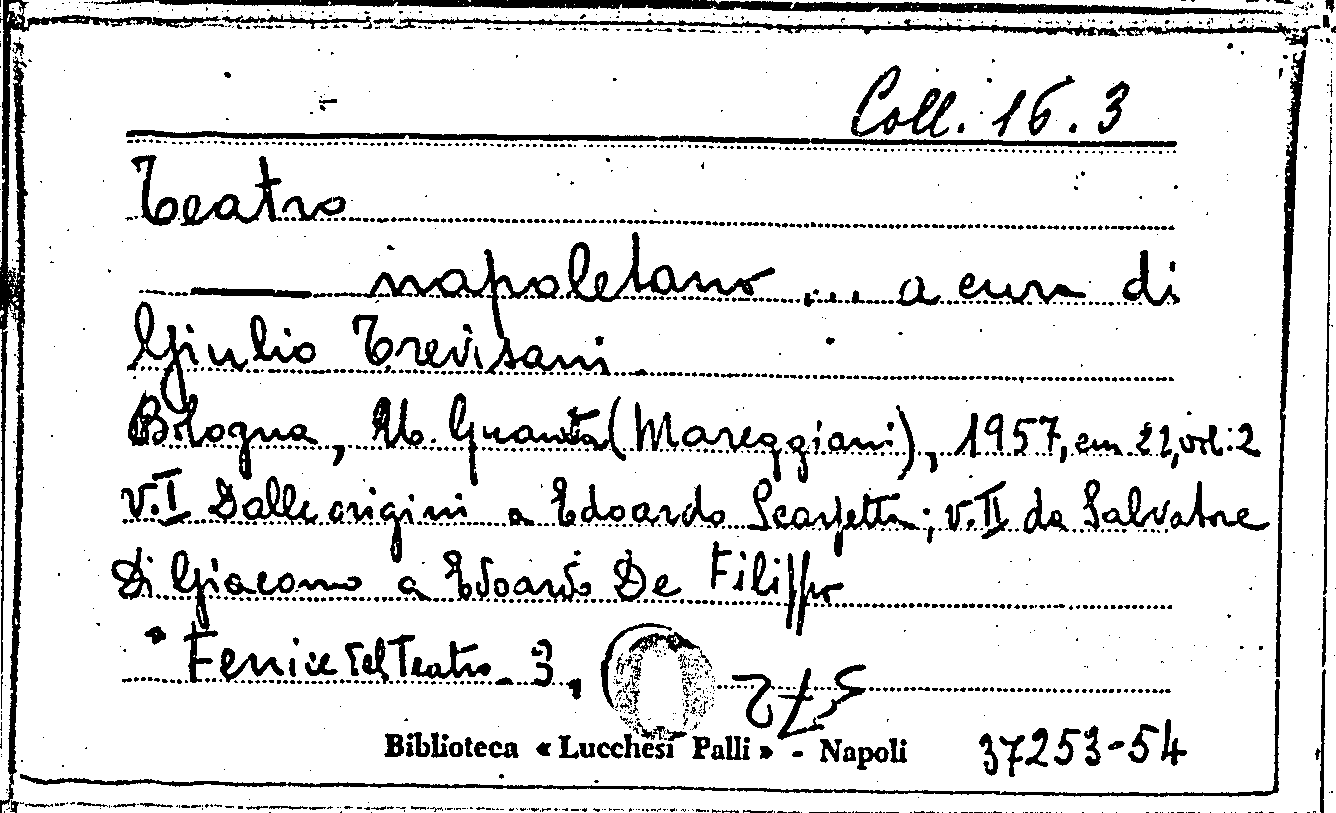 Coll. 16.3
Teatro
—— napoletano ... a cura di
Giulio Trevisani.
Bologna, Ub. Guanda (Mareggiani), 1957, cm 22, vol: 2
v. I Dalle origini a Edoardo Scarpetta; v. II da Salvatore
Di Giacomo a Edoardo De Filippo
* Fenice del Teatro - 3,
Biblioteca « Lucchesi Palli » - Napoli 37253-54